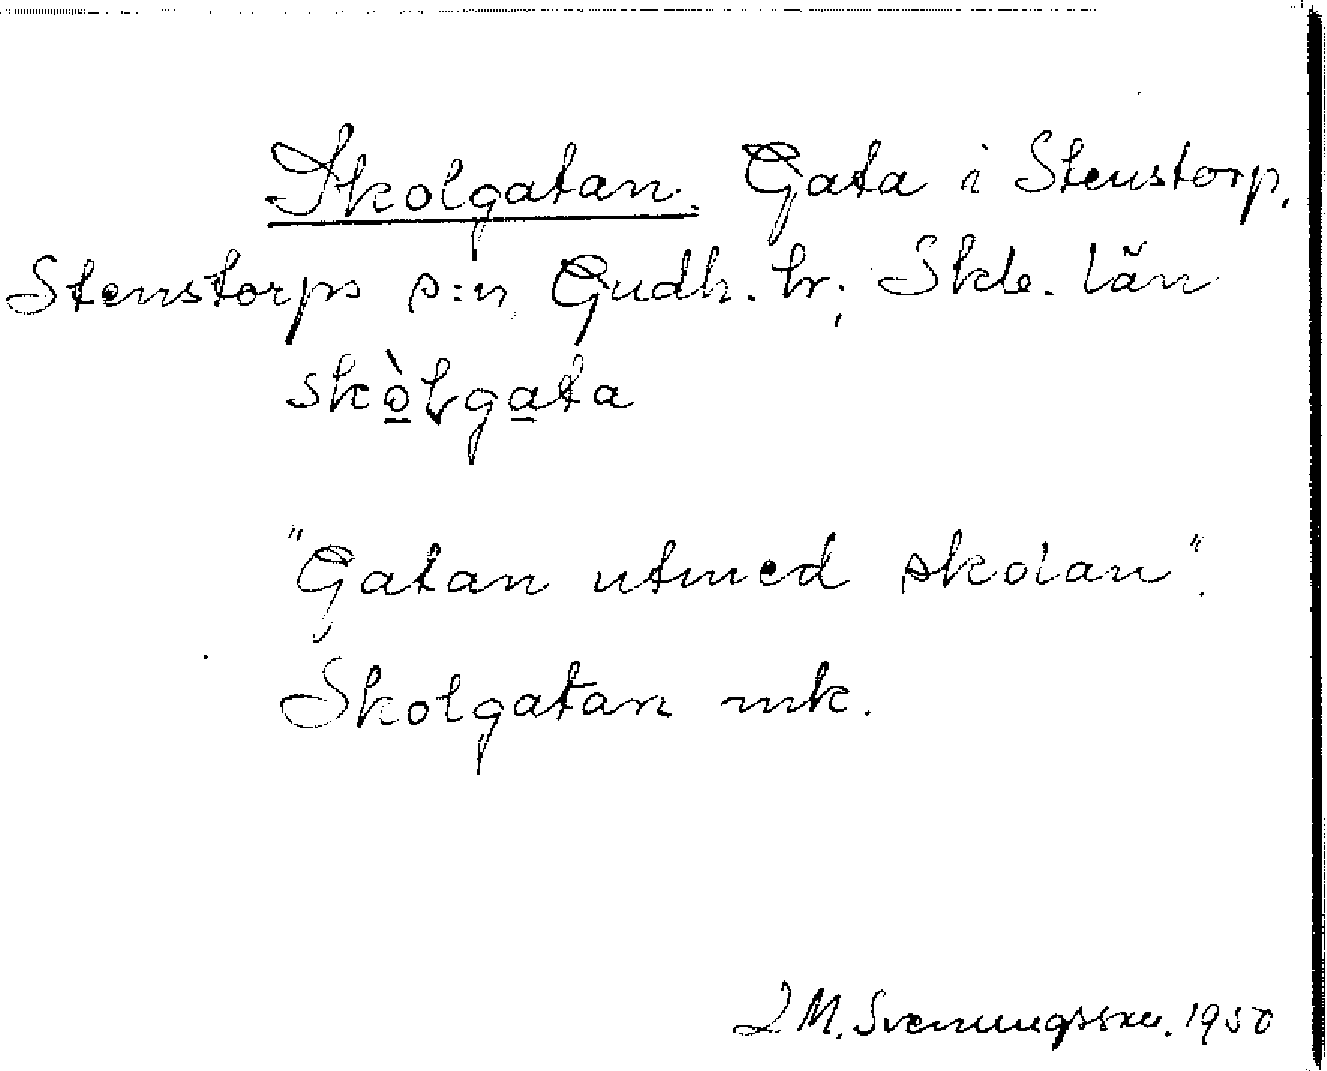 Skolgatan. Gata i Stenstorp,
Stenstorps s:n, Gudh. hr; Skb. län
skò̲ⱡga̲ta
"Gatan utmed skolan".
Skolgatan mk.
M. Svenungsson. 1950